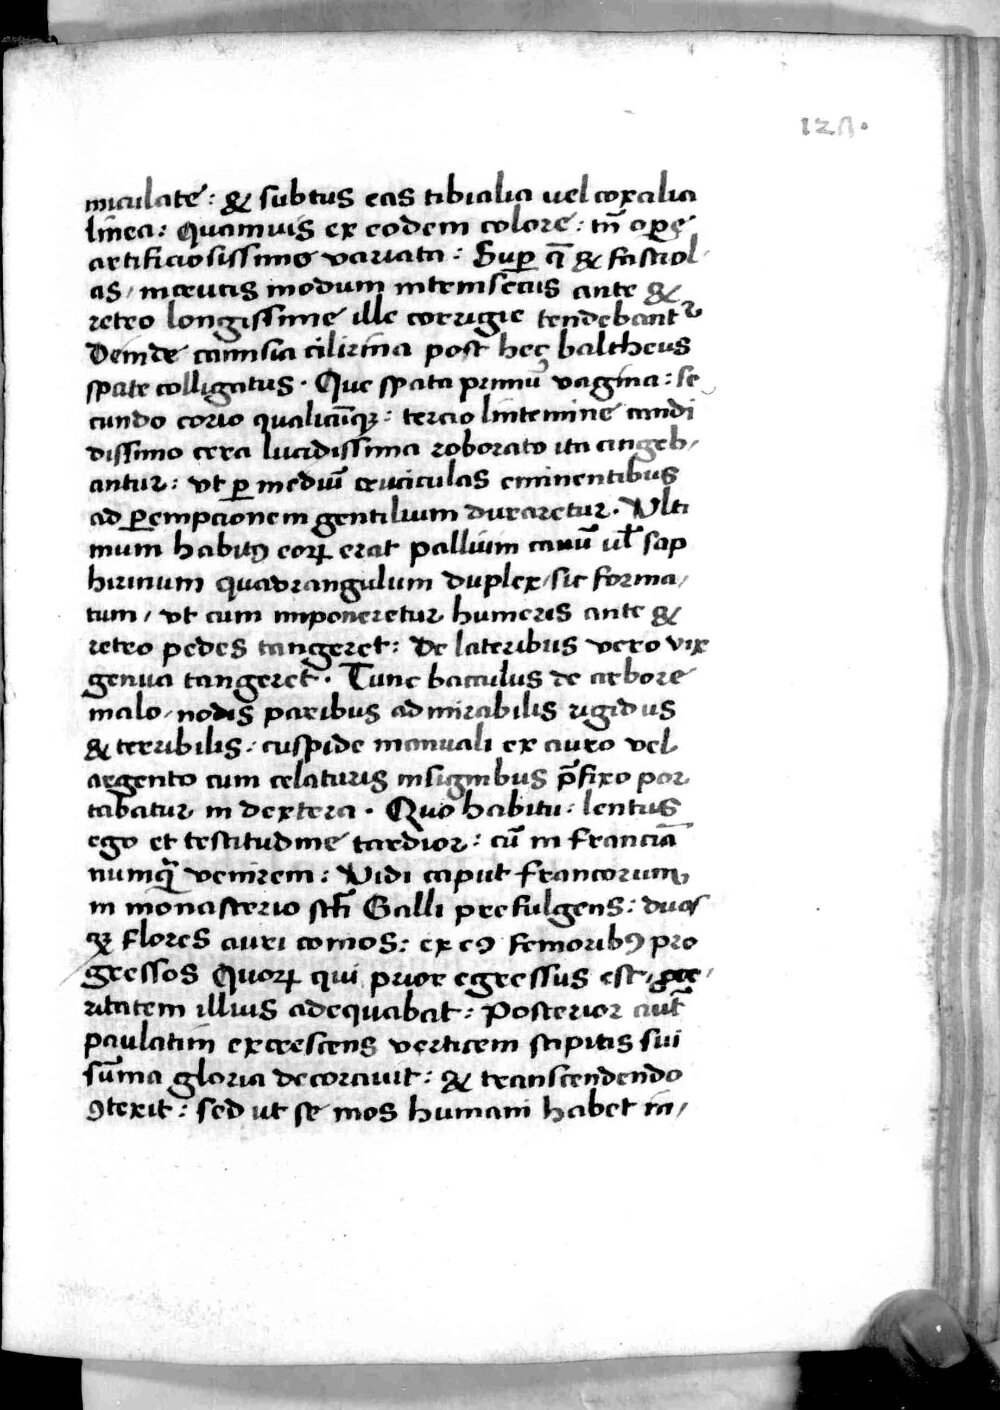 128.
miculate: & subtus eas tibialia uel coxalia
linea: Quamuis ex eodem colore: tn̄ oꝑe
artificiosissimo variata: Suꝑ q̄ & fasciol-
as / in crucis modum intrinsecus ante &
retro longissime ille corrigie tendebantr
Deinde camisia cilizina post hec baltheus
spate colligatus. Que spata primū vagina: se
cundo corio qualicūqꝫ: tercio linteamine candi
dissimo cera lucidissima roborato ita cingeb/
antur: vt ꝑ mediū cruciculas eminentibus
ad ꝑempcionem gentilium duraretur. Vlti
mum habitꝯ eoꝝ erat pallium canū ul̄ sap
hirinum quadrangulum duplex / sic forma/
tum / vt cum imponeretur humeris ante &
retro pedes tangeret: De lateribus vero vix
genua tangeret. Tunc baculus de arbore
malo / nodis paribus admirabilis rigidus
& terribilis: cuspide manuali ex auro vel
argento cum celaturis insignibus p̄fixo por
tabatur in dextera. Quo habitu: lentus
ego et testitudine tardior: cū in franciā
numq̄ venirem: Vidi caput francorum
in monasterio scti Galli prefulgens: duos
qꝫ flores auri comos: ex eꝯ femoribꝯ pro
gressos Quoꝝ qui prior egressus est / proce/
ritatem illius adequabat: Posterior aut̄
paulatim excrescens verticem stipitis sui
sūma gloria decorauit: & transcendendo
ꝯtexit: sed ut se mos humani habet in/